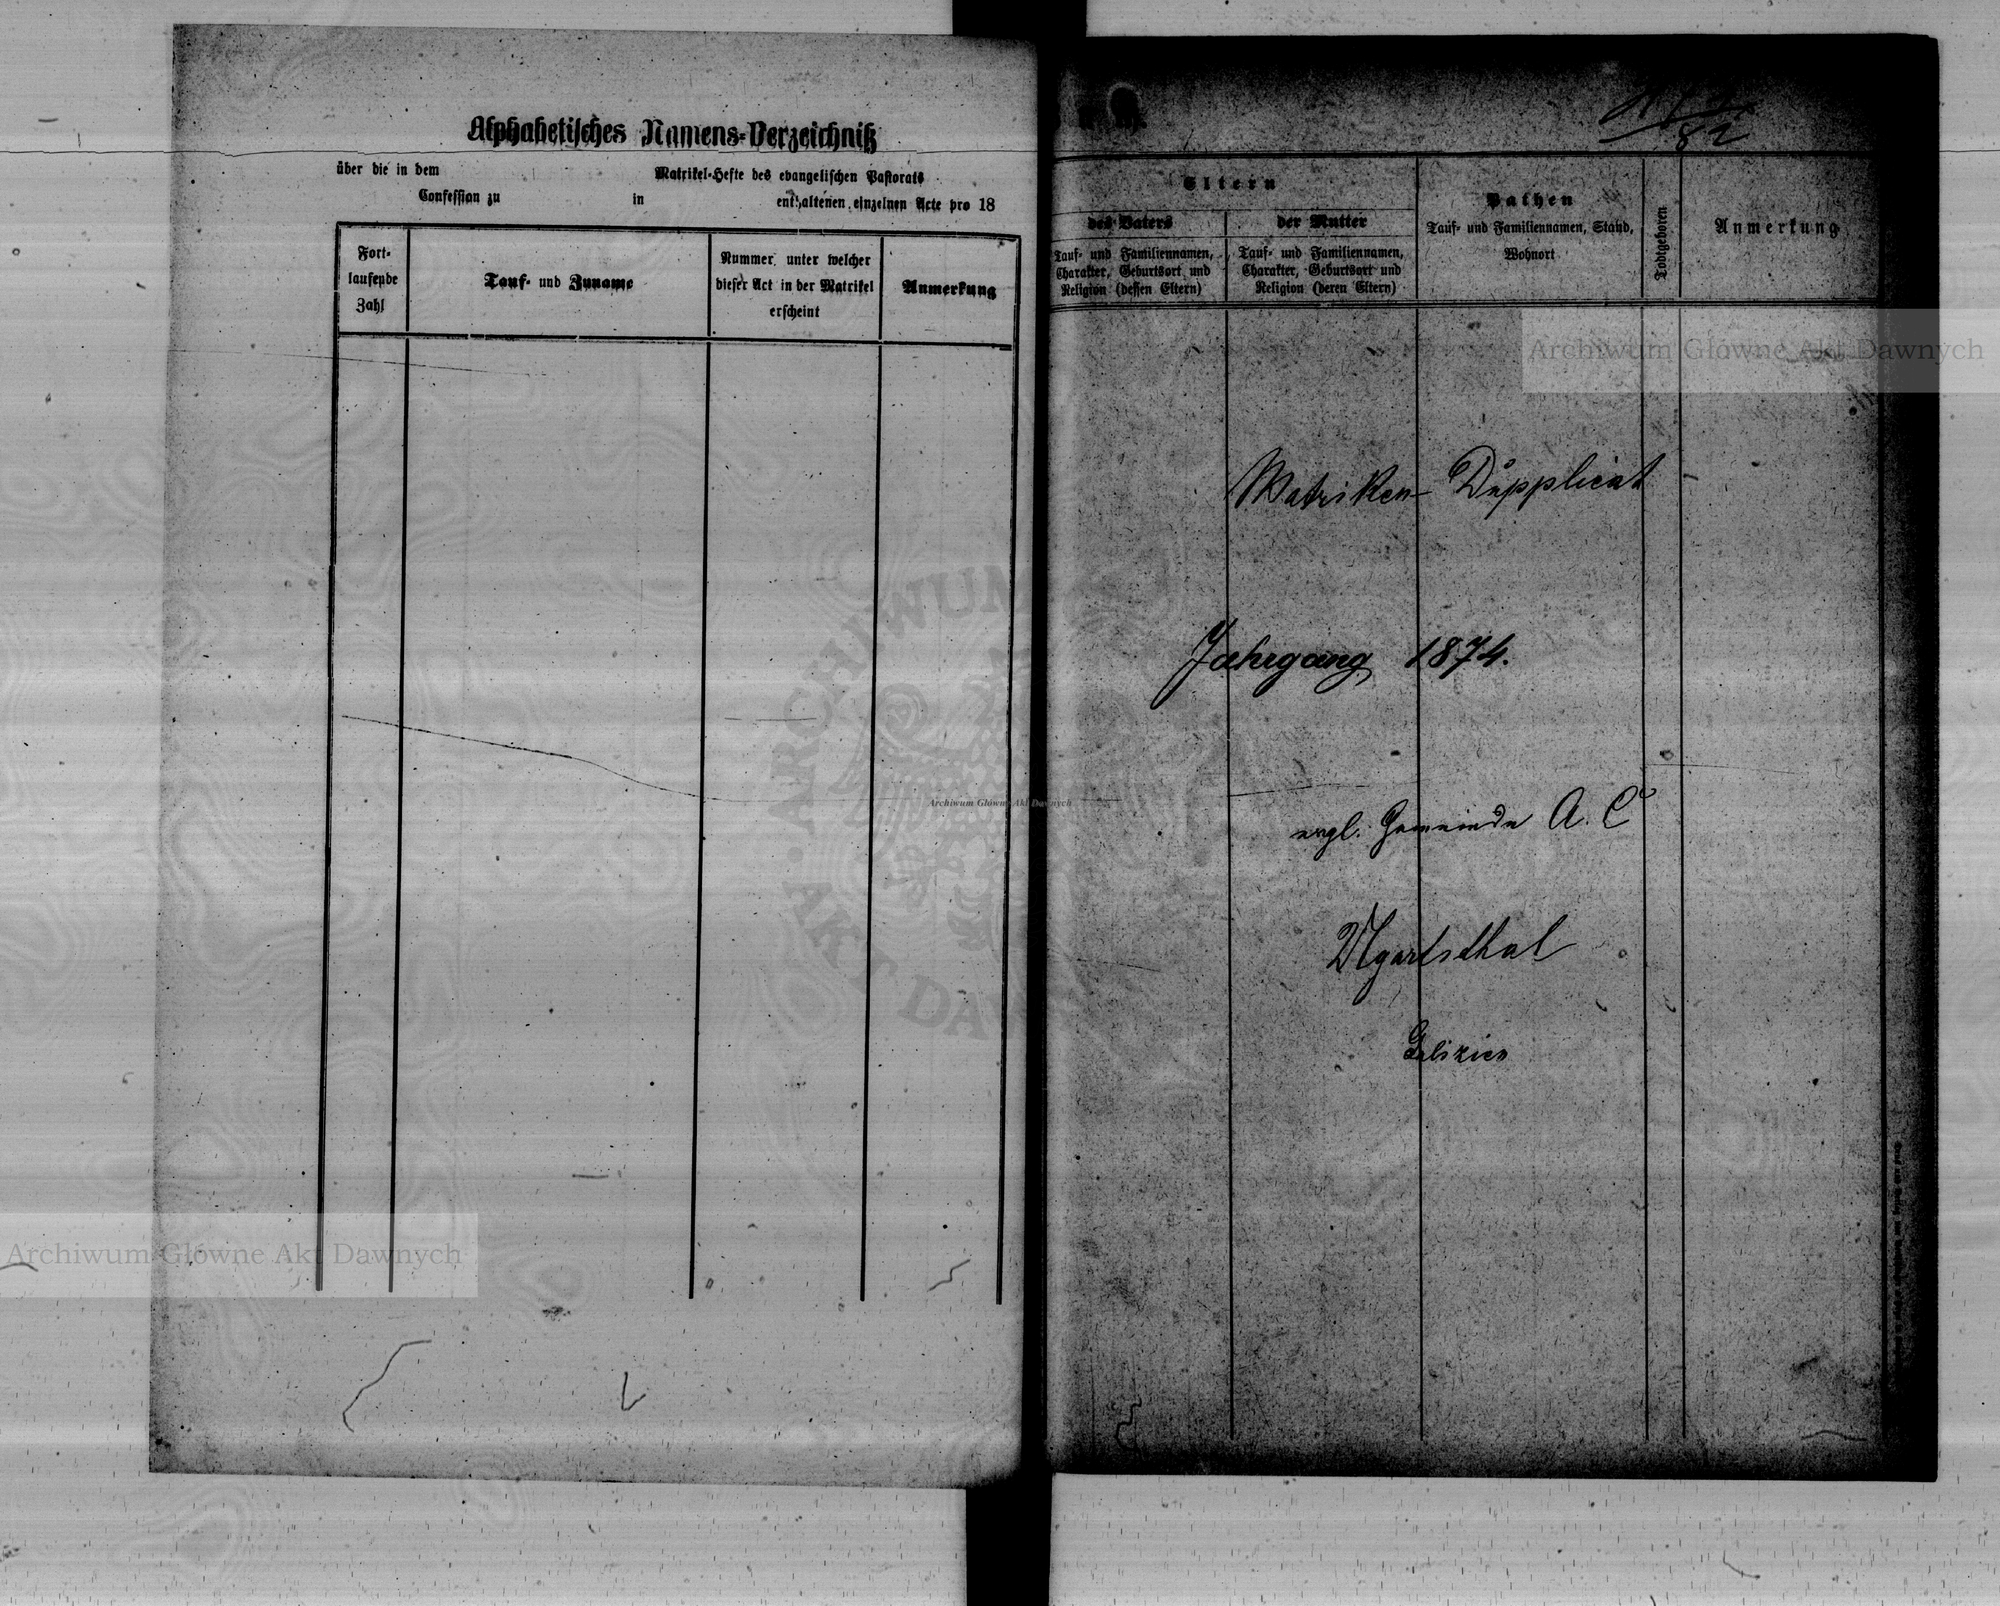 Alphabetisches Namens-Verzeichniß
über die in dem Matrikel-Hefte des evangelischen Pastorats
Confession zu in enthaltenen einzelnen Acte pro 18
Fort-
laufende
Zahl
Tauf- und Zuname
Nummer unter welcher
dieser Act in der Matrikel
erscheint
Anmerkung
82
Eltern
des Vaters
Tauf- und Familiennamen,
Charakter, Geburtsort und
Religion (dessen Eltern)
der Mutter
Tauf- und Familiennamen,
Charakter, Geburtsort und
Religion (deren Eltern)
Pathen
Tauf- und Familiennamen, Stand,
Wohnort
Todtgeboren
Anmerkung
Matriken- Dupplicat
Jahrgang 1874.
evgl. Gemeinde A. C
Ugartsthal
Galizien
Archiwum Główne Akt Dawnych
Archiwum Główne Akt Dawnych
Archiwum Główne Akt Dawnych
ARCHIWUM
AKT DA